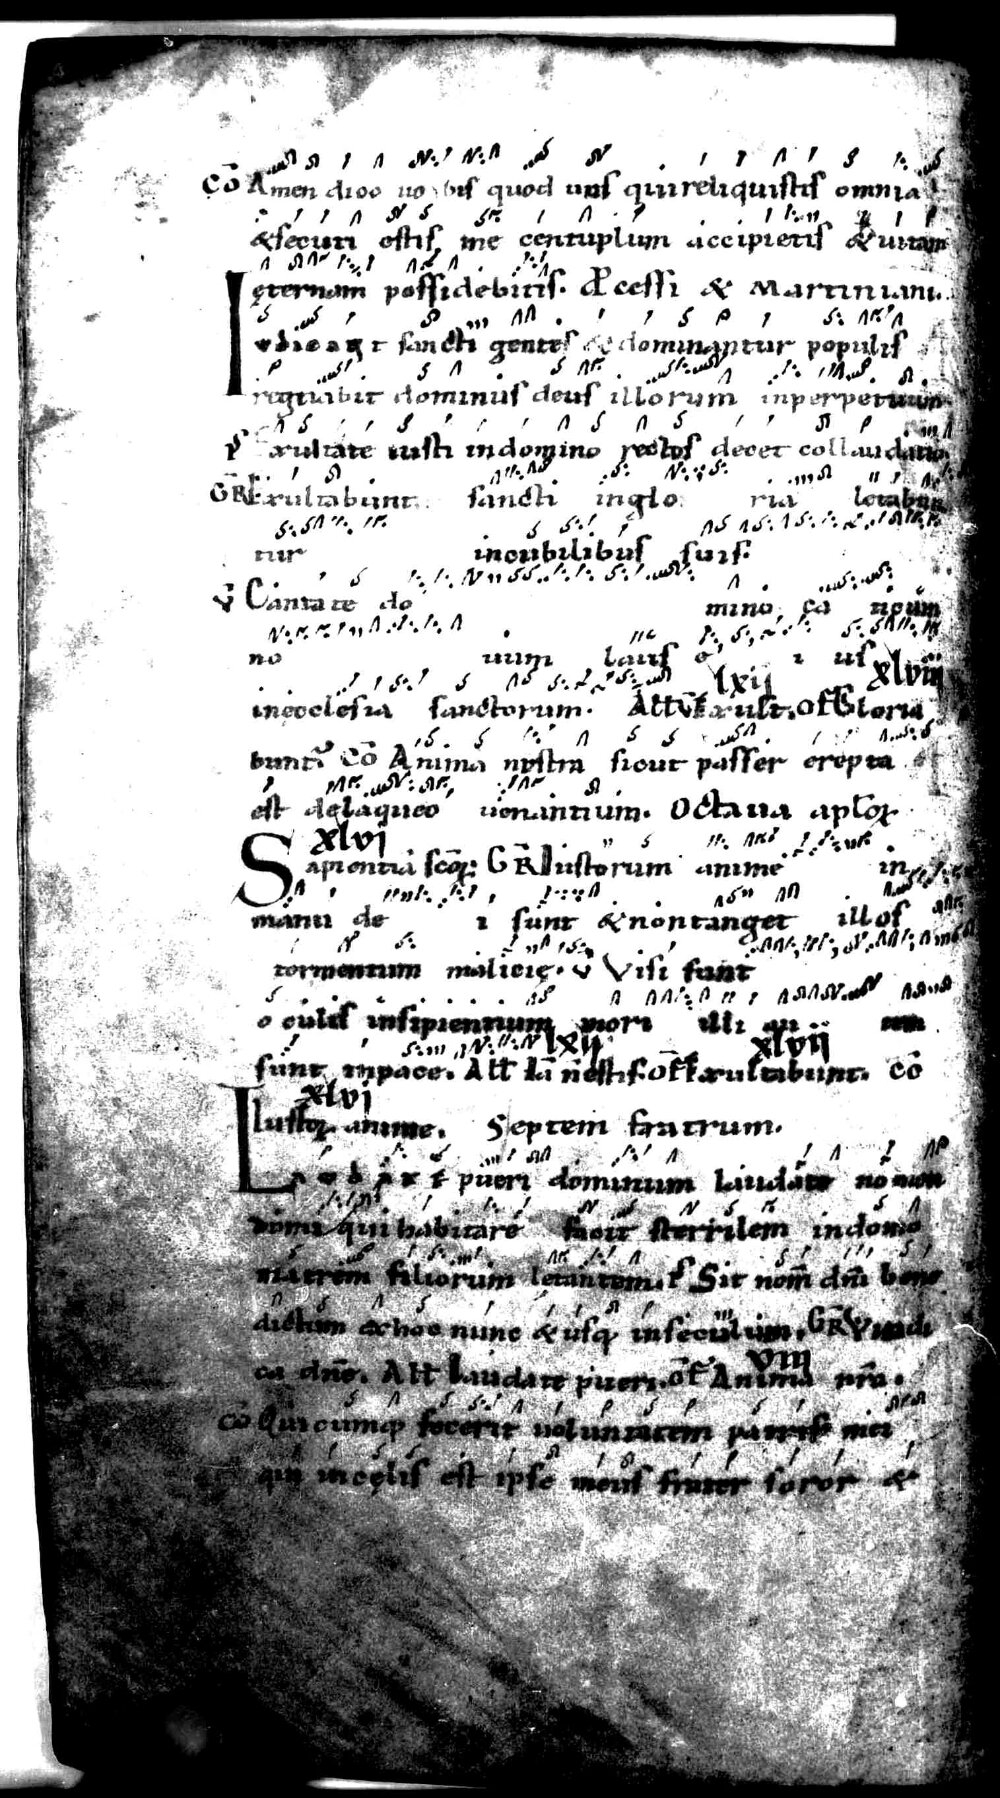 CŌ Amen dico uobis quod uos qui reliquistis omnia
& secuti estis me centuplum accipietis & uitam
ęternam possidebitis. Pcessi & Martiniani.
Iudicant sancti gentes & dominantur populis
regnabit dominus deus illorum inperpetuum
Ps Exultate iusti indomino rectos decet collaudatio
GR Exultabunt sancti inglo ria letabun
tur incubilibus suis.
V Cantate do mino ca ticum
no uum laus e i us
lxii xlviii
inecclesia sanctorum. All V Exult. OF Gloria
bunt. CŌ Anima nostra sicut passer erepta
est delaqueo uenantium. Octaua aplōꝝ
xlvi
Sapientiā scōꝝ: GR Iustorum anime in
manu de i sunt & non tanget illos
tormentum malicię. V Visi sunt
oculis insipientium mori illi au tem
lxii xlvii
sunt inpace. All Iā nestis. OF Exultabunt. CŌ
xlvi
Iustoꝝ anime. Septem fratrum.
Laudate pueri dominum laudate nomen
domini qui habitare facit sterilem indomo
matrem filiorum letantem. Ps Sit nom̄ dn̄i bene
dictum ex hoc nunc & usq; inseculum. GR Vindi
VIII
ca dn̄e. All Laudate pueri. OF Anima nr̄a.
CŌ Quicumq; fecerit uoluntatem patris mei
qui incęlis est ipse meus frater soror &